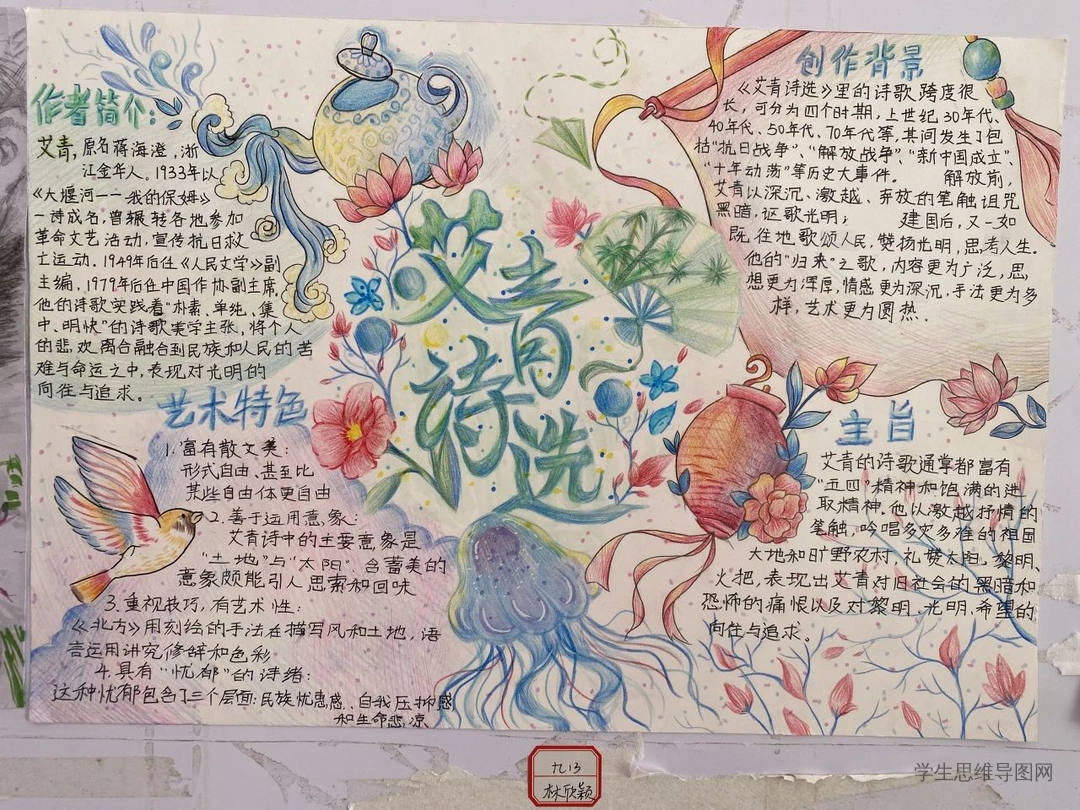 作者简介:
艾青,原名蒋海澄,浙
江金华人。1933年以
《大堰河——我的保姆》
一诗成名,曾辗转各地参加
革命文艺活动,宣传抗日救
亡运动。1949年后任《人民文学》副
主编。1979年后任中国作协副主席,
他的诗歌实践着“朴素、单纯、集
中、明快”的诗歌美学主张,将个人
的悲欢离合融合到民族和人民的苦
难与命运之中,表现对光明的
向往与追求。
艺术特色
1.富有散文美:
形式自由、甚至比
某些自由体更自由
2.善于运用意象:
艾青诗中的主要意象是
“土地”与“太阳”,含蓄美的
意象颇能引人思索和回味
3.重视技巧,有艺术性:
《北方》用刻绘的手法在描写风和土地,语
言运用讲究修辞和色彩
4.具有“忧郁”的诗绪:
这种忧郁包含了三个层面:民族忧患感、自我压抑感
和生命悲凉
艾青
诗选
创作背景
《艾青诗选》里的诗歌跨度很
长,可分为四个时期,上世纪30年代、
40年代、50年代、70年代等,其间发生了包
括“抗日战争”、“解放战争”、“新中国成立”、
“十年动荡”等历史大事件。 解放前,
艾青以深沉、激越、奔放的笔触诅咒
黑暗,讴歌光明; 建国后,又一如
既往地歌颂人民,赞扬光明,思考人生。
他的“归来”之歌,内容更为广泛,思
想更为浑厚,情感更为深沉,手法更为多
样,艺术更为圆热.
主旨
艾青的诗歌通常都富有
“五四”精神和饱满的进
取精神。他以激越抒情的
笔触,吟唱多灾多难的祖国
大地和旷野农村,礼赞太阳,黎明、
火把,表现出艾青对旧社会的黑暗和
恐怖的痛恨以及对黎明、光明、希望的
向往与追求。
九13
林欣颖
学生思维导图网